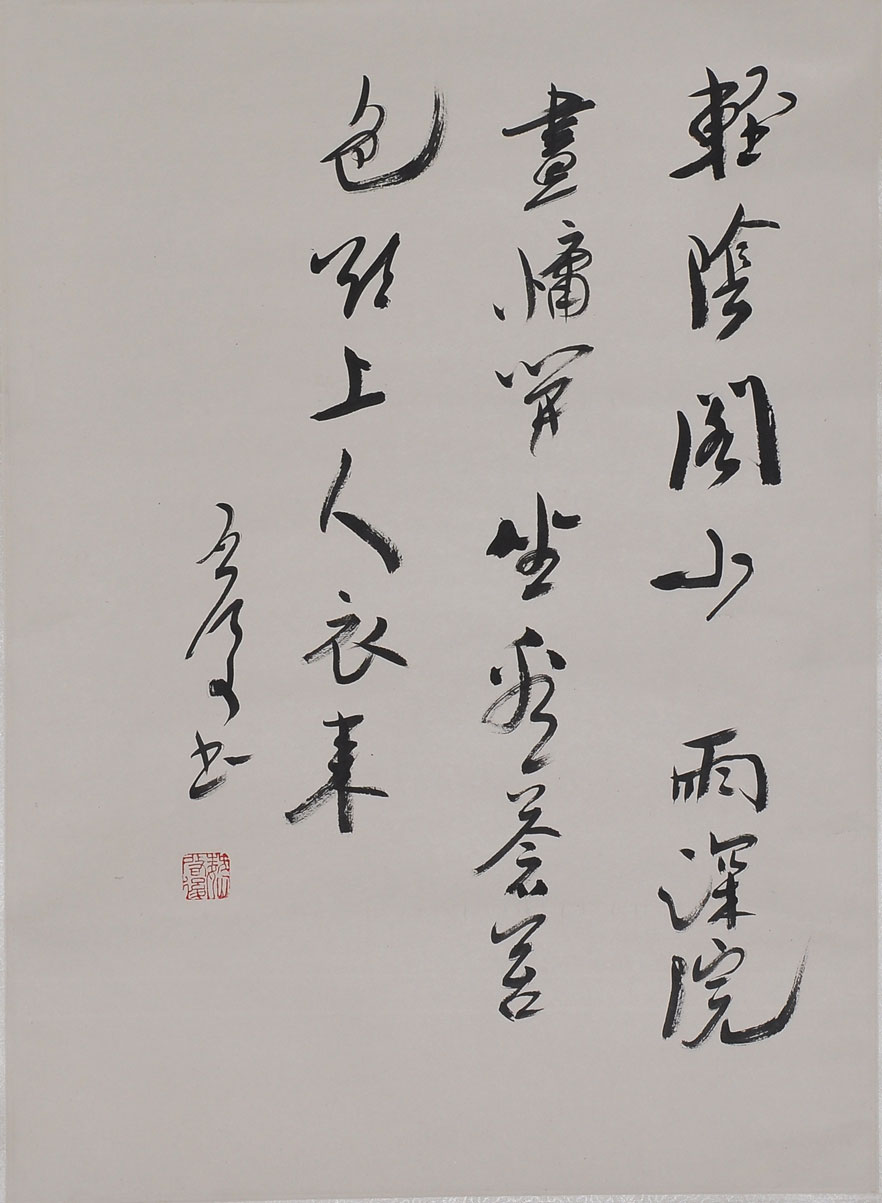 輕陰閣小雨深院
晝慵開坐看蒼苔
色欲上人衣來
啟後書
魏啟後